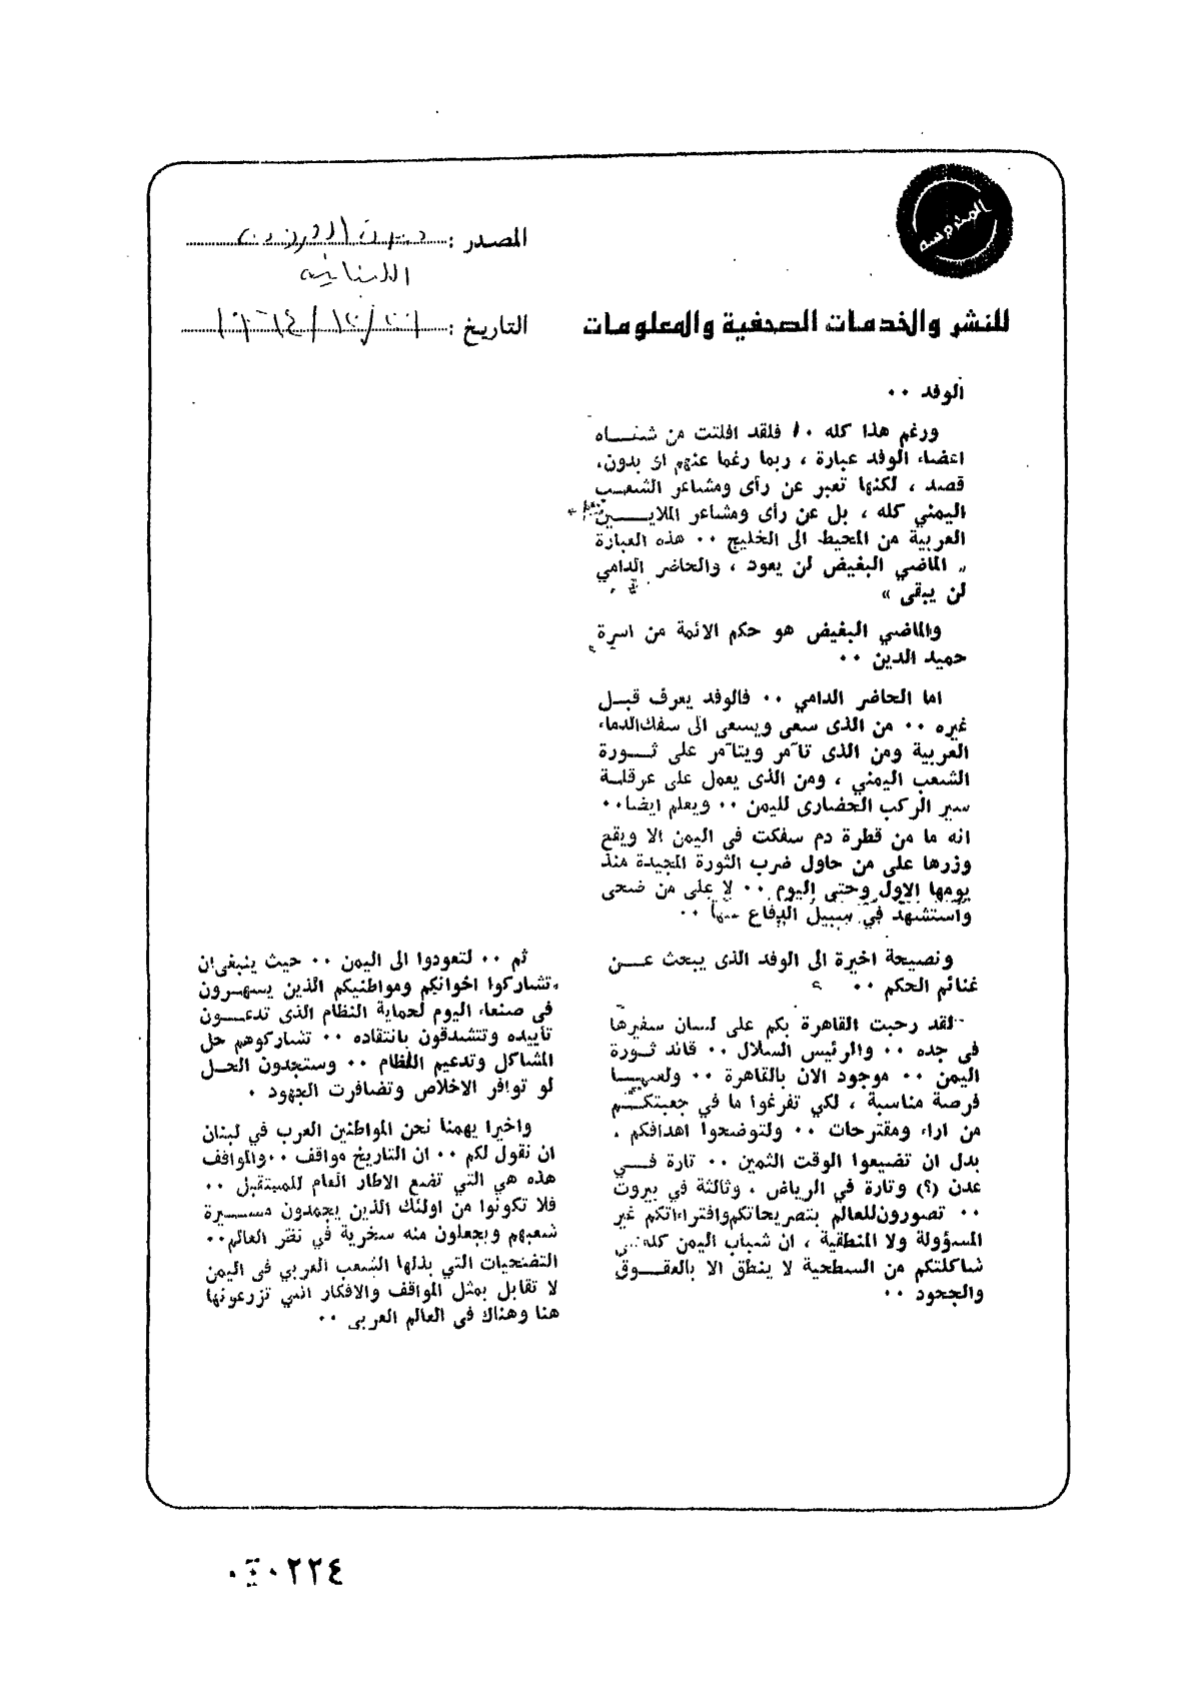 المصدر :
اللبنانية
للنشر والخدمات الصحفية والمعلومات
التاريخ :
الوفد ٠٠
ورغم هذا كله ٠٠ فلقد افلتت من شفـــاه
اعضاء الوفد عبارة ، ربما رغما عنهم اى بدون
قصد ، لكنها تعبر عن رأى ومشاعر الشعـب
اليمني كله ، بل عن رأى ومشاعر الملايــــين
العربية من المحيط الى الخليج ٠٠ هذه العبارة
« الماضي البغيض لن يعود ، والحاضر الدامي
لن يبقى »
والماضي البغيض هو حكم الائمة من اسرة
حميد الدين ٠٠
اما الحاضر الدامي ٠٠ فالوفد يعرف قبـل
غيره ٠٠ من الذى سعى ويسعى الى سفك الدماء
العربية ومن الذى تآمر ويتآمر على ثـــورة
الشعب اليمني ، ومن الذى يعمل على عرقلـة
سير الركب الحضارى لليمن ٠٠ ويعلم ايضا ٠٠
انه ما من قطرة دم سفكت فى اليمن الا ويقع
وزرها على من حاول ضرب الثورة المجيدة منذ
يومها الاول وحتى اليوم ٠٠ لا على من ضحى
واستشهد في سبيل الدفاع عنها ٠٠
ونصيحة اخيرة الى الوفد الذى يبحث عـــن
غنائم الحكم ٠٠
لقد رحبت القاهرة بكم على لسان سفيرها
فى جده ٠٠ والرئيس السلال ٠٠ قائد ثــورة
اليمن ٠٠ موجود الان بالقاهرة ٠٠ ولعـهـــا
فرصة مناسبة ، لكي تفرغوا ما في جعبتكـــم
من اراء ومقترحات ٠٠ ولتوضحوا اهدافكم ،
بدل ان تضيعوا الوقت الثمين ٠٠ تارة فـــي
عدن (؟) وتارة في الرياض ، وثالثة في بيروت
٠٠ تصورون للعالم بتصريحاتكم وافتراءاتكم غير
المسؤولة ولا المنطقية ، ان شباب اليمن كله
شاكلتكم من السطحية لا ينطق الا بالعقـــوق
والجحود ٠٠
ثم ٠٠ لتعودوا الى اليمن ٠٠ حيث ينبغى ان
تشاركوا اخوانكم ومواطنيكم الذين يسهـرون
فى صنعاء اليوم لحماية النظام الذى تدعـــون
تأييده وتتشدقون بانتقاده ٠٠ تشاركوهم حل
المشاكل وتدعيم النظام ٠٠ وستجدون الحــل
لو توافر الاخلاص وتضافرت الجهود ٠
واخيرا يهمنا نحن المواطنين العرب في لبنان
ان نقول لكم ٠٠ ان التاريخ مواقف ٠٠ والمواقف
هذه هي التي تضع الاطار العام للمستقبل ٠٠
فلا تكونوا من اولئك الذين يجمدون مســـيرة
شعبهم ويجعلون منه سخرية في نظر العالم ٠٠
التضحيات التي بذلها الشعب العربي فى اليمن
لا تقابل بمثل المواقف والافكار التي تزرعونها
هنا وهناك فى العالم العربى ٠٠